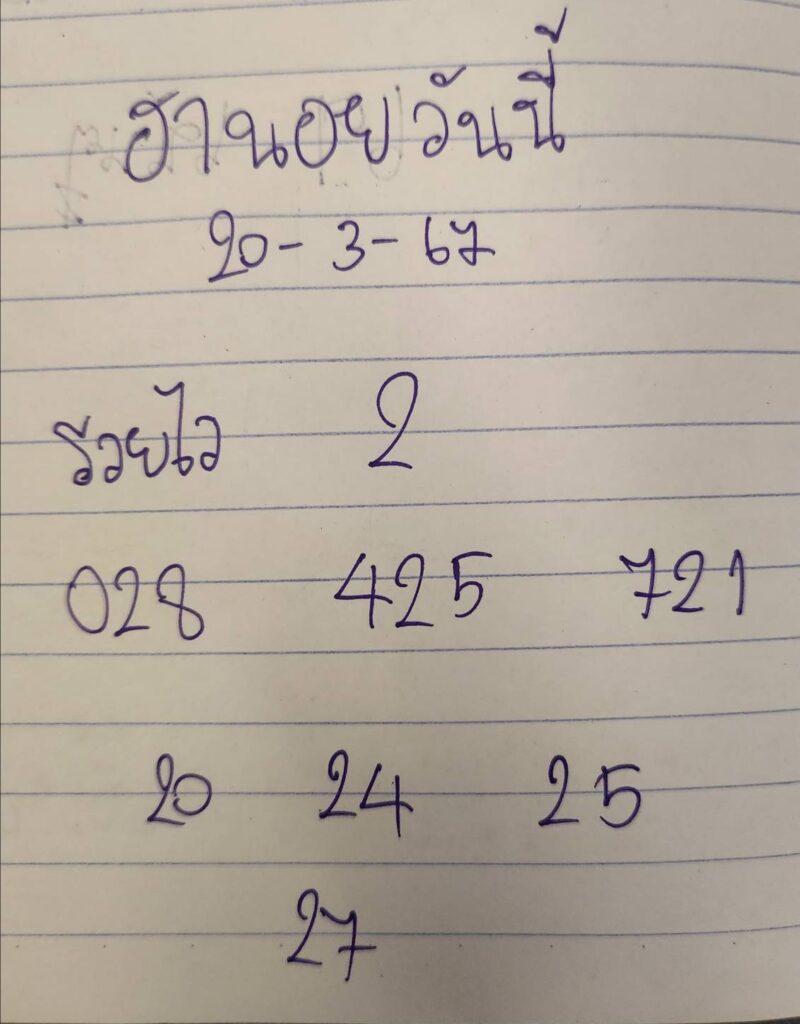 ฮานอยวันนี้
20-3-67
รวยไว 2
028 425 721
20 24 25
27